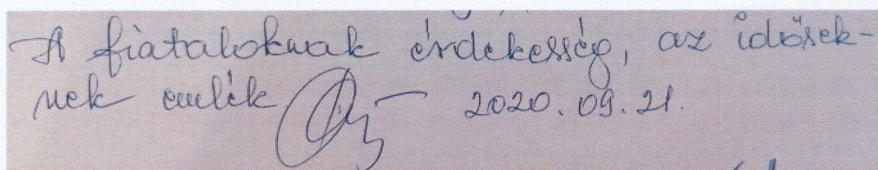 A fiataloknak érdekesség, az idősek-
nek emlék 2020. 09. 21.